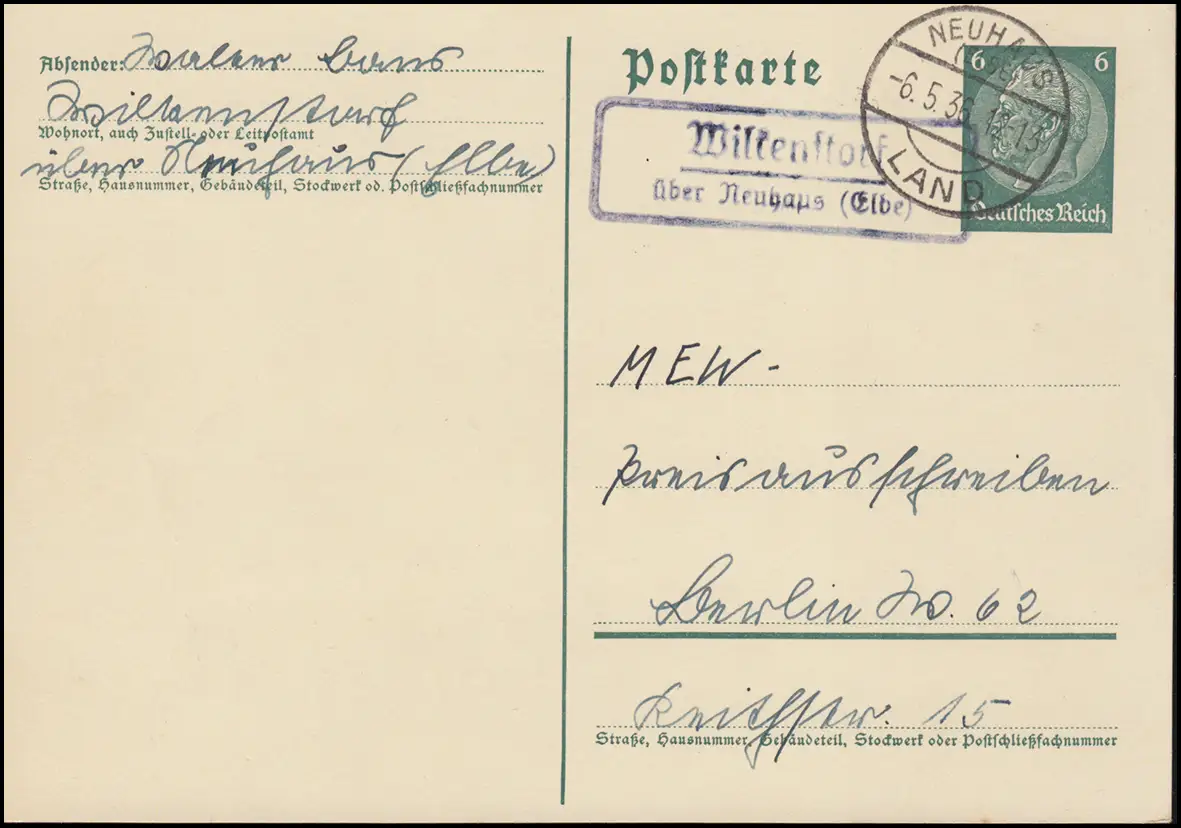 Absender: Walter Gans
Wilkenstorf
Wohnort, auch Zustell- oder Leitpostamt
über Neuhaus (Elbe)
Straße, Hausnummer, Gebäudeteil, Stockwerk od. Postschließfachnummer
Postkarte
NEUHAUS
-6.5.36. 12-13
LAND
6 6
Deutsches Reich
Wilkenstorf
über Neuhaus (Elbe)
MEW-
Preisausschreiben
Berlin W. 62
Keithstr. 15
Straße, Hausnummer, Gebäudeteil, Stockwerk oder Postschließfachnummer